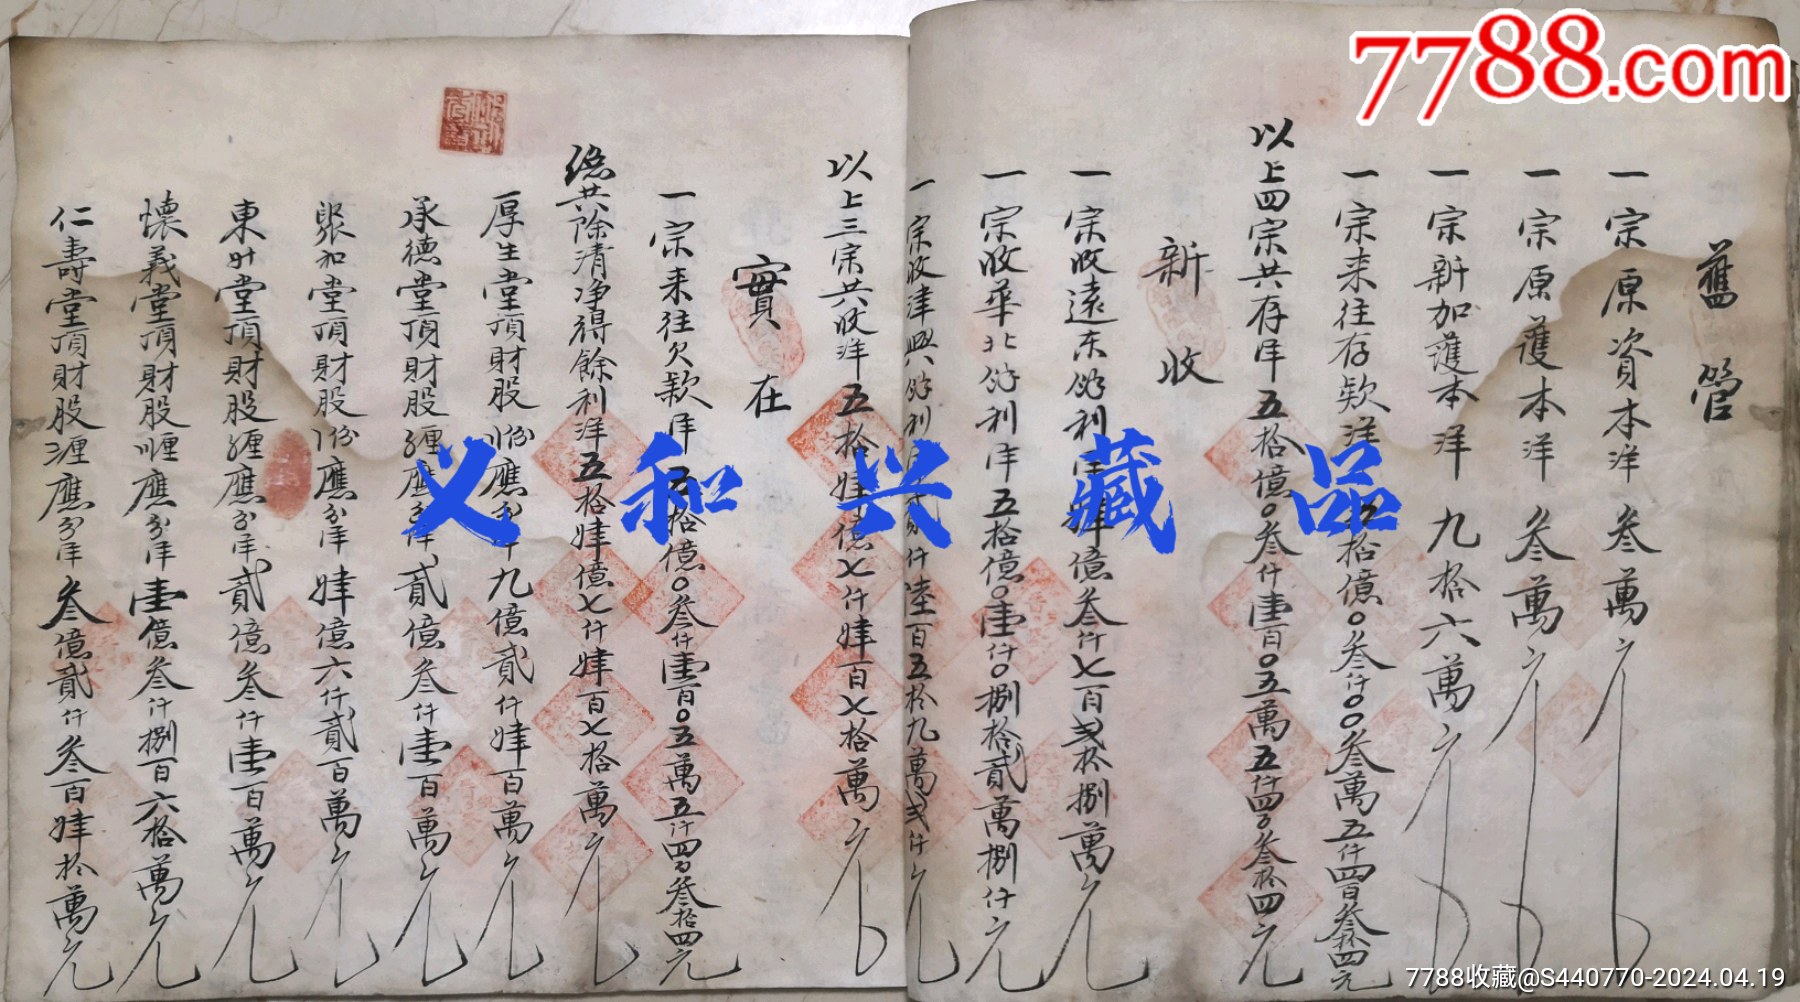 7788.com
舊管
一宗原資本洋叁萬元
一宗原護本洋叁萬元
一宗新加護本洋九拾六萬元
一宗来往存欵洋五拾億0叁仟00叁萬五仟四百叁拾四元
以上四宗共存洋五拾億0叁仟壹百0五萬五仟四百叁拾四元
新收
一宗收遠东餘利洋肆億叁仟七百弍拾捌萬元
一宗收華北餘利洋五拾億0壹仟0捌拾貳萬捌仟元
一宗收津興餘利洋貳仟陸百五拾九萬弍仟元
以上三宗共收洋五拾肆億七仟肆百七拾萬元
實在
一宗来往欠欵洋五拾億0叁仟壹百0五萬五仟四百叁拾四元
總共除清净得餘利洋五拾肆億七仟肆百七拾萬元
厚生堂頂財股份應分洋九億貳仟肆百萬元
承德堂頂財股 應分洋貳億叁仟壹百萬元
聚和堂頂財股 份應分洋肆億六仟貳百萬元
東 堂頂財股 應分洋貳億叁仟壹百萬元
懷義堂頂財股 應分洋壹億叁仟捌百六拾萬元
仁壽堂頂財股 應分洋叁億貳仟叁百肆拾萬元
义和兴藏品
7788收藏@S440770-2024.04.19